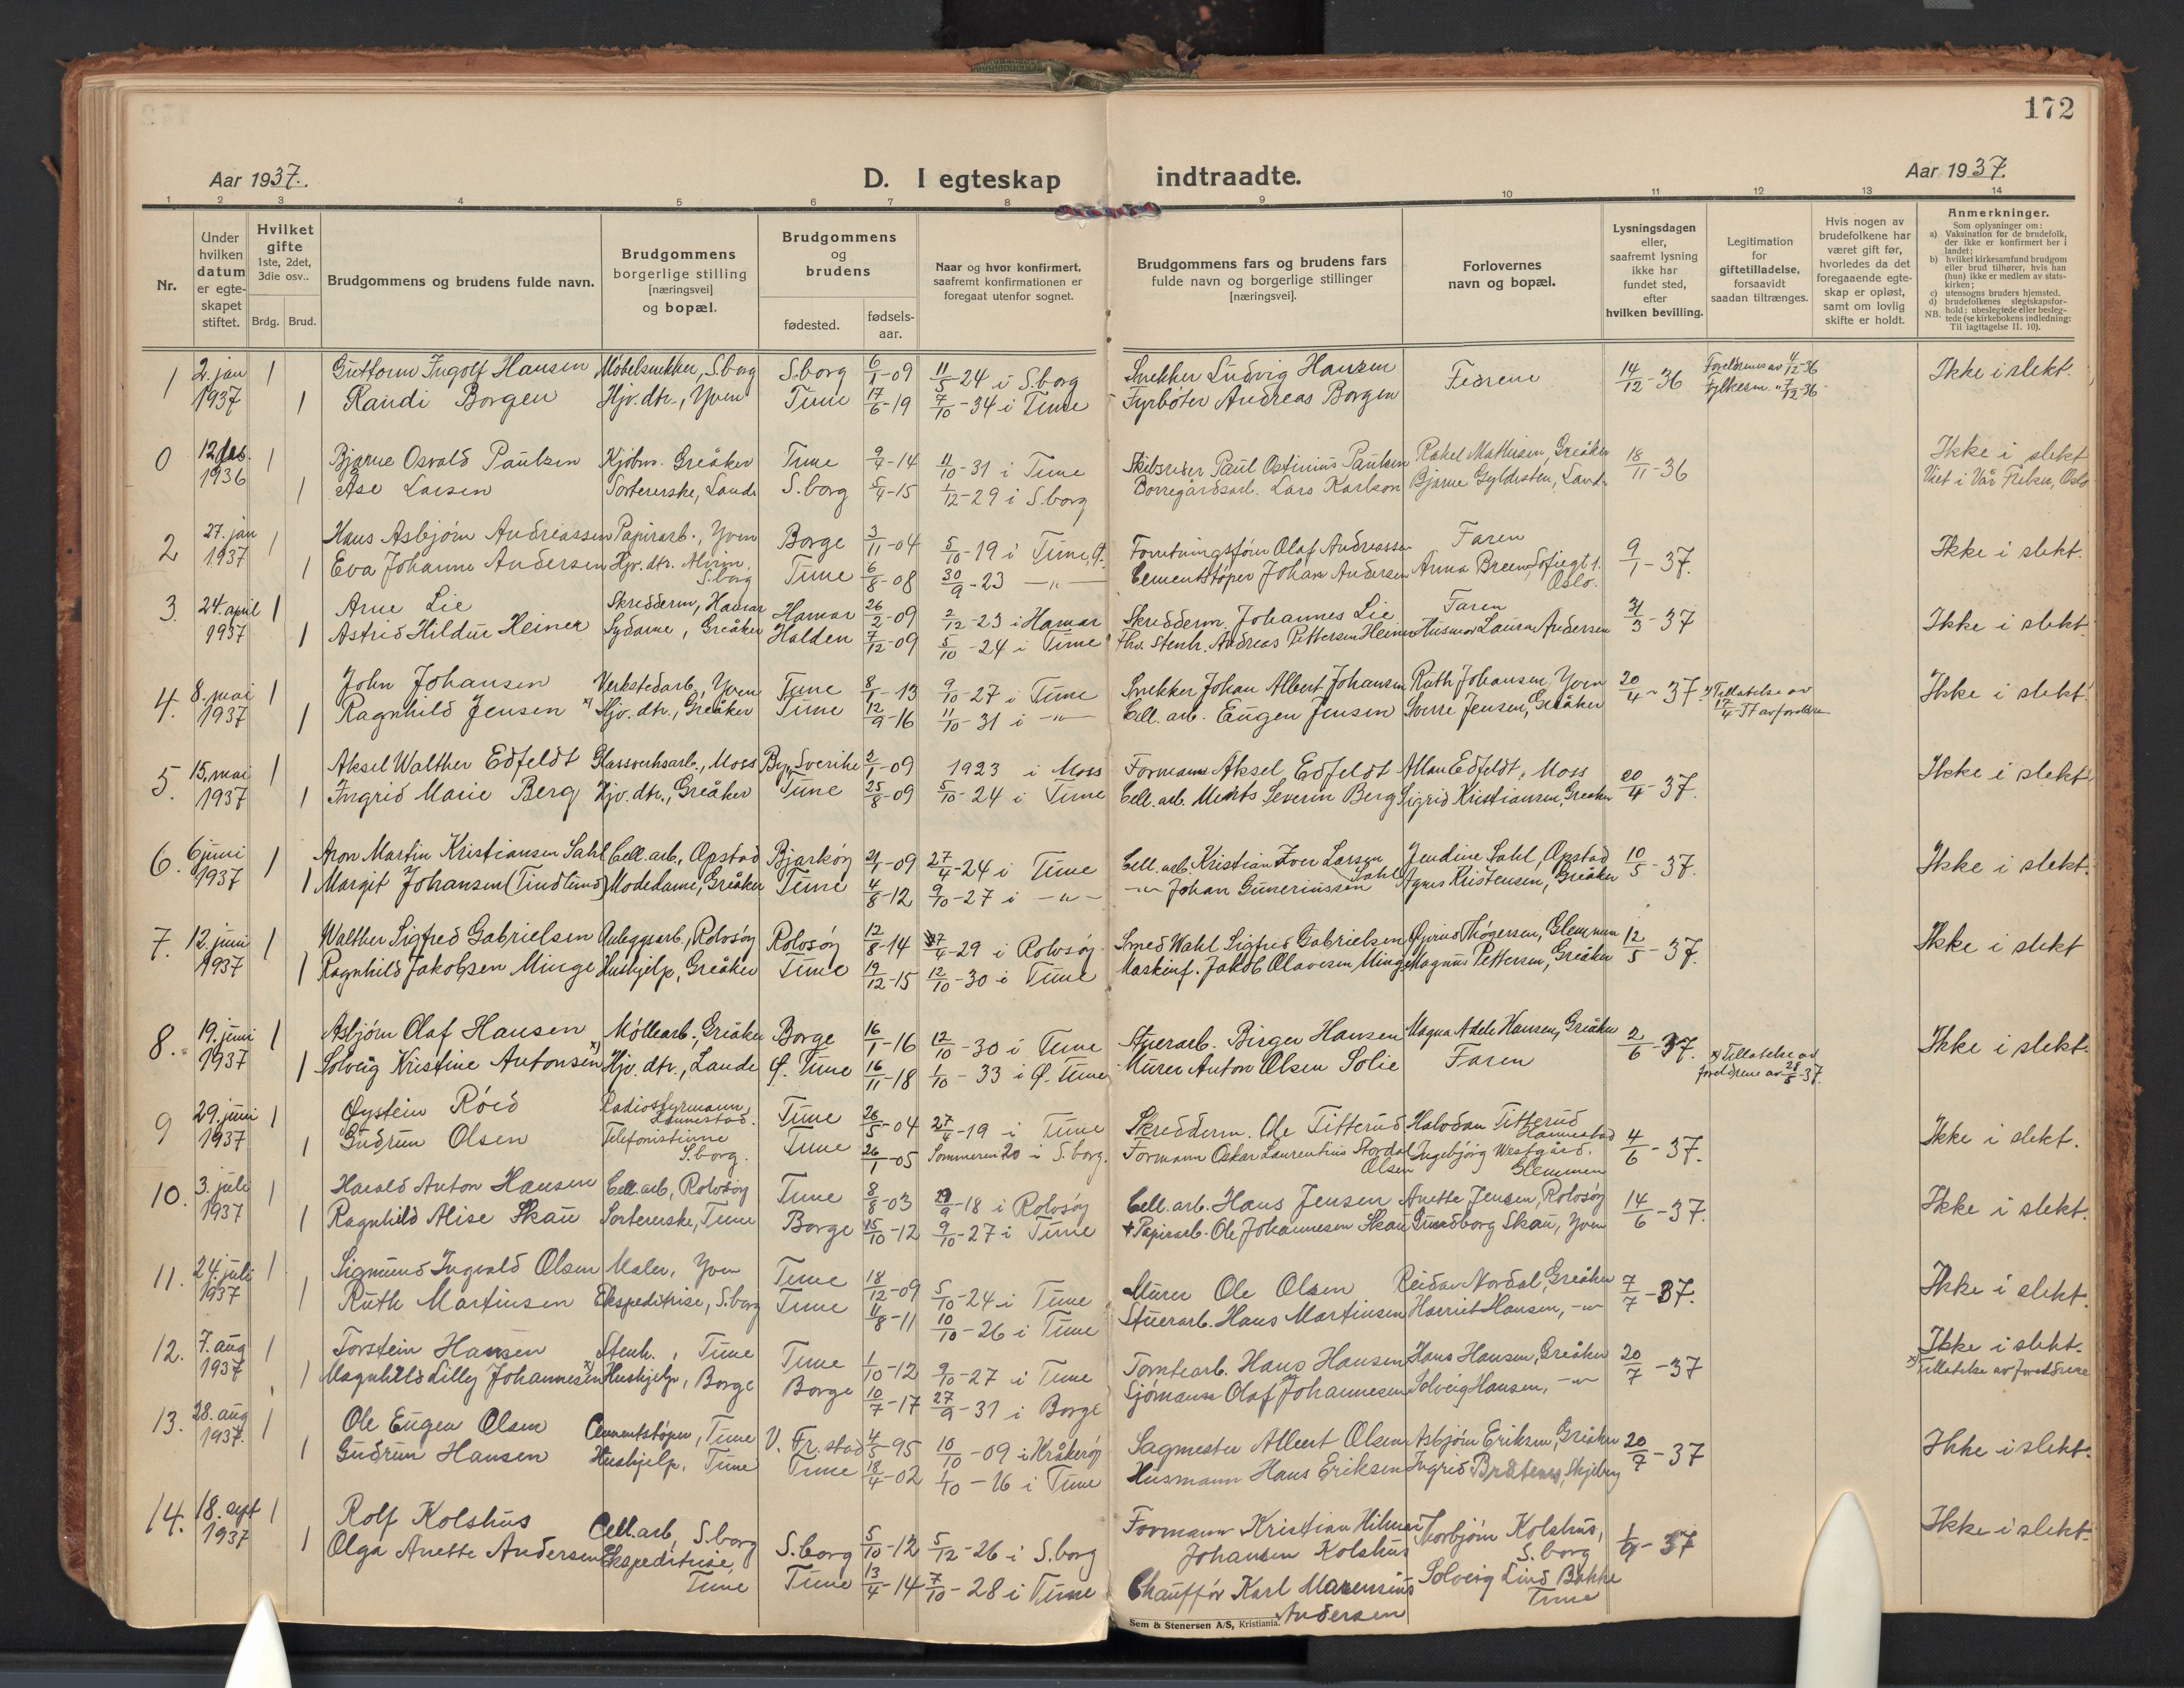 172
Aar 1937.
D. I egteskap indtraadte.
Aar 1937.
1 2 3 4 5 6 7 8 9 10 11 12 13 14
Nr.
Under hvilken datum er egteskapet stiftet.
Hvilket gifte 1ste, 2det, 3die osv..
Brdg. Brud.
Brudgommens og brudens fulde navn.
Brudgommens borgerlige stilling [næringsvei] og bopæl.
Brudgommens og brudens
fødested.
fødsels-aar.
Naar og hvor konfirmert, saafremt konfirmationen er foregaat utenfor sognet.
Brudgommens fars og brudens fars fulde navn og borgerlige stillinger [næringsvei].
Forlovernes navn og bopæl.
Lysningsdagen eller, saafremt lysning ikke har fundet sted, efter hvilken bevilling.
Legitimation for giftetilladelse, forsaavidt saadan tiltrænges.
Hvis nogen av brudefolkene har været gift før, hvorledes da det foregaaende egteskap er opløst, samt om lovlig skifte er holdt.
Anmerkninger.
Som oplysninger om:
a) Vaksination for de brudefolk, der ikke er konfirmert her i landet;
b) hvilket kirkesamfund brudgom eller brud tilhører, hvis han (hun) ikke er medlem av statskirken;
c) utensogns bruders hjemsted.
d) brudefolkenes slegtskapsforhold: ubeslegtede eller beslegtede (se kirkebokens indledning: Til iagttagelse II. 10).
NB.
1 2. jan 1 Guttorm Ingolf Hansen Møbelsnekker, S.borg S.borg 6/1-09 11/5-24 i S.borg Snekker Ludvig Hansen Fedrene 14/12-36 Foreldrenes av 4/12-36 Ikke i slekt.
1937 1 Randi Borgen Hjv. dtr., Yven Tune 17/6-19 7/10-34 i Tune Fyrbøter Andreas Borgen Fylkesm. " 7/12-36
0 12 des. 1 Bjarne Osvald Paulsen Kjøbm. Greåker Tune 9/7-14 11/10-31 i Tune Skibsreder Paul Ostinius Paulsen Rakel Mathisen, Greåker 18/11-36 Ikke i slekt
1936 1 Åse Larsen Sortererske, Lande S.borg 5/4-15 1/12-29 i S.borg Borregårdsarb. Lars Karlson Bjarne Gyldesten, Lande Viet i Vår Frelser, Oslo
2 27. jan 1 Hans Asbjørn Andreassen Papirarb., Yven Borge 3/11-04 5/10-19 i Tune, Ø. Forretningsfører Olaf Andreassen Faren 9/1-37. Ikke i slekt.
1937 1 Eva Johanne Andersen Hjv. dtr. Alvim, S.borg Tune 6/8-08 30/9-23 -"- Cementstøper Johan Andersen Anna Breen, Sofiegt 1. Oslo.
3. 24. april 1 Arne Lie Skredderm, Hamar Hamar 26/2-09 2/12-23 i Hamar Skredderm. Johannes Lie Faren 31/3-37 Ikke i slekt.
1937 1 Astrid Hildur Heiner Sydame, Greåker Halden 7/12-09 5/10-24 i Tune Fhv. Stenh. Andreas Pettersen Heiner Husmor Laura Andersen
4. 8. mai 1 John Johansen Verkstedarb., Yven Tune 8/1-13 9/10-27 i Tune Snekker Johan Albert Johansen Ruth Johansen, Yven 20/4-37. x) Tillatelse av Ikke i slekt.
1937 1 Ragnhild Jensen x) Hjv. dtr., Greåker Tune 12/9-16 11/10-31 i -"- Cell. arb. Eugen Jensen Sverre Jensen, Greåker 17/4-37 av foreldre
5. 15. mai 1 Aksel Walther Edfeldt Glassverksarb., Moss By, Sverike 2/1-09 1923 i Moss Formann Aksel Edfeldt Allan Edfeldt, Moss 20/4-37. Ikke i slekt.
1937 1 Ingrid Marie Berg Hjv. dtr., Greåker Tune 25/8-09 5/10-24 i Tune Cell. arb. Severin Berg Sigrid Kristiansen, Greåker
6. 6 juni 1 Aron Martin Kristiansen Sahl Cell. arb., Opstad Bjarkøy -09 27/4-24 i Tune Cell. arb. Kristian Iver Larsen Sahl Jendine Sahl, Opstad 10/5-37. Ikke i slekt.
1937 1 Margit Johansen (Tindlund) Modedame, Greåker Tune 4/8-12 9/10-27 i -"- -"- Johan Guneriussen Agnes Kristensen, Greåker
7. 12. juni 1 Walther Sigfred Gabrielsen Anleggsarb., Rolvsøy Rolvsøy 12/8-14 /4-29 i Rolvsøy Smed Wahl Sigfred Gabrielsen Thøgersen, Glemmen 12/5-37. Ikke i slekt
1937 1 Ragnhild Jakobsen Minge Hushjelp, Greåker Tune 19/12-15 12/10-30 i Tune Maskinf. Jakob Olavesen Minge Magnus Pettersen, Greåker
8. 19. juni 1 Asbjørn Olaf Hansen Møllearb., Greåker Borge 16/1-16 12/10-30 i Tune Stuerarb. Birger Hansen Magna Adele Hansen, Greåker 2/6-37. x) Tillatelse av Ikke i slekt.
1937 1 Solveig Kristine Antonsen x) Hjv. dtr., Lande Ø. Tune 16/11-18 1/10-33 i Ø. Tune Murer Anton Olsen Solie Faren foreldrene av 28/5-37.
9 29. juni 1 Øystein Röed Radiostyrmann, Hannestad. Tune 26/5-04 27/4-19 i Tune Skredderm. Ole Titterud Halvdan Titterud Hannestad 4/6-37. Ikke i slekt.
1937 1 Gudrun Olsen Telefonistinne S.borg. Tune 26/1-05 Sommeren 20 i S.borg. Formann Oskar Laurentius Stordal Olsen Ingebjørg Westgård, Glemmen
10. 3. juli 1 Harald Anton Hansen Cell. arb, Rolvsøy Tune 8/8-03 29/9-18 i Rolvsøy Cell. arb. Hans Jensen Anette Jensen, Rolvsøy 14/6-37. Ikke i slekt.
1937 1 Ragnhild Alise Skau Sortererske, Tune Borge 15/10-12 9/10-27 i Tune + Papirarb. Ole Johannesen Skau Gundborg Skau, Yven
11. 24. juli 1 Sigmund Ingvald Olsen Maler, Yven Tune 18/12-09 5/10-24 i Tune Murer Ole Olsen Reidar Nordal, Greåker 7/7-37. Ikke i slekt.
1937 1 Ruth Martinsen Ekspeditrise, S.borg Tune 4/8-11 10/10-26 i Tune Stuerarb. Hans Martinsen Harriet Hansen, -"-
12. 7. aug 1 Torstein Hansen Stenh., Tune Tune 1/10-12 9/10-27 i Tune Tomtearb. Hans Hansen Hans Hansen, Greåker 20/7-37 Ikke i slekt.
1937 1 Magnhild Lilly Johannesen x) Hushjelp, Borge Borge 10/7-17 27/9-31 i Borge Sjømann Olaf Johannesen Solveig Hansen, -"- x) Tillatelse av foreldrene
13. 28. aug 1 Ole Eugen Olsen Cementstøper, Tune V. Fr.stad 4/5-95 10/10-09 i Kråkerøy Sagmester Albert Olsen Asbjørn Eriksen, Greåker 20/7-37 Ikke i slekt.
1937. 1 Gudrun Hansen Hushjelp, Tune Tune 18/4-02 1/10-16 i Tune Husmann Hans Eriksen Ingrid Bråtenes, Skjeberg
14. 18. sept 1 Rolf Kolshus Cell. arb, S.borg S.borg 5/10-12 5/12-26 i S.borg Formann Kristian Hilmar Johansen Kolshus Thorbjørn Kolshus, S.borg 1/9-37 Ikke i slekt.
1937 1 Olga Anette Andersen Ekspeditrise, Tune Tune 13/4-14 7/10-28 i Tune Chauffør Karl Marensius Andersen Solveig Lind Bakke Tune
Sem & Stenersen A/S, Kristiania.